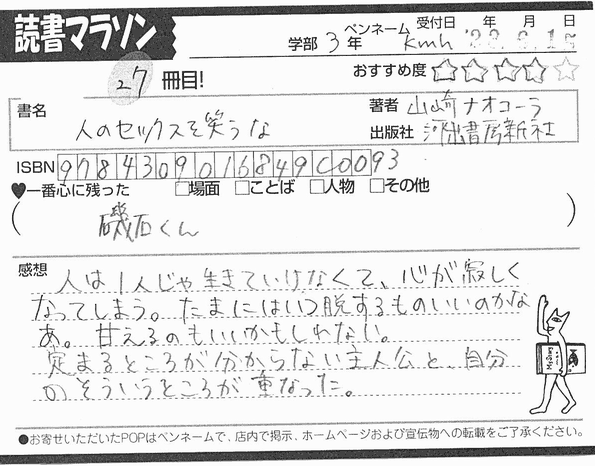 読書マラソン
学部 3年
ペンネーム kmh
受付日 年 月 日
27冊目!
おすすめ度 ☆☆☆☆☆
書名
人のセックスを笑うな
著者 山崎ナオコーラ
出版社 河出書房新社
ISBN 9784309016849C0093
♥一番心に残った □場面 □ことば □人物 □その他
( 磯石くん )
感想
人は1人じゃ生きていけなくて、心が寂しく
なってしまう。たまにはいつ脱するものいいのかな
あ。甘えるのもいいかもしれない。
定まるところが分からない主人公と、自分
のそういうところが重なった。
●お寄せいただいたPOPはペンネームで、店内で掲示、ホームページおよび宣伝物への転載をご了承ください。